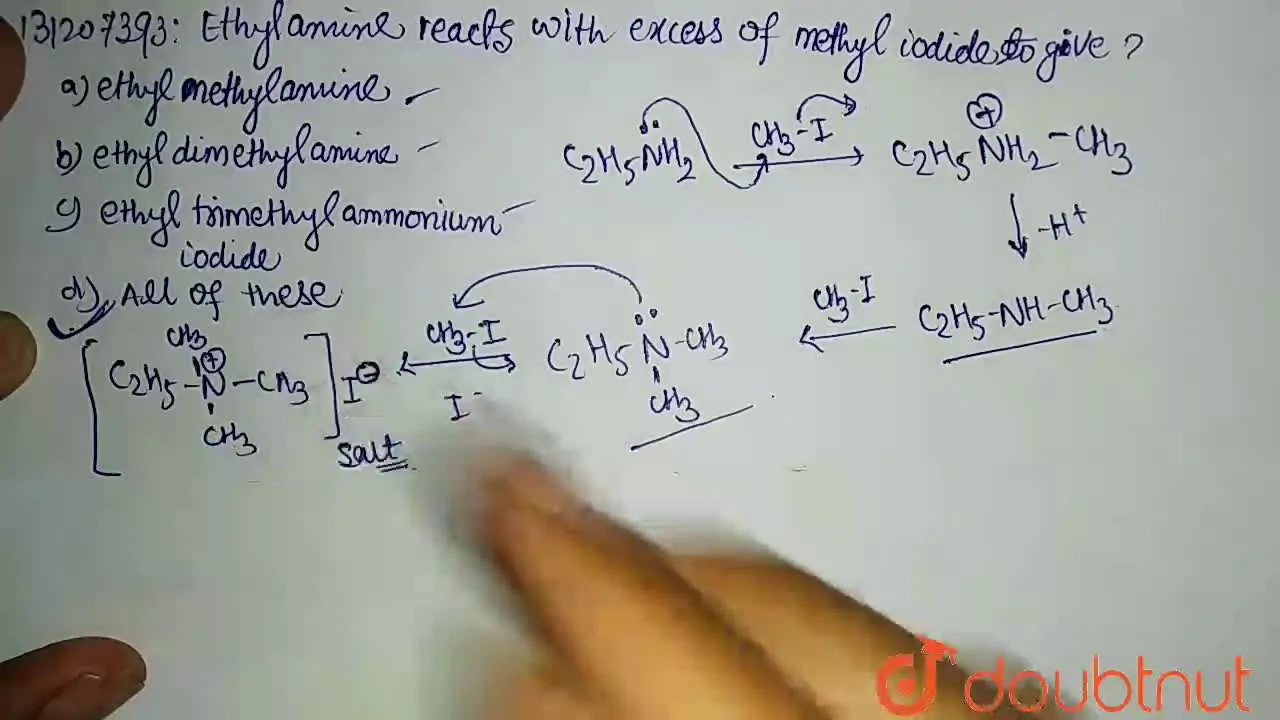 131207393: Ethylamine reacts with excess of methyl iodide to give ?
a) ethyl methylamine
b) ethyl dimethylamine
c) ethyl trimethyl ammonium
iodide
d) All of these
C2H5NH2
CH3-I
⊕
C2H5NH2-CH3
-H+
C2H5-NH-CH3
CH3-I
C2H5N-CH3
CH3
CH3-I
I-
CH3
⊕
[C2H5-N-CH3] I⊖
CH3
salt
doubtnut